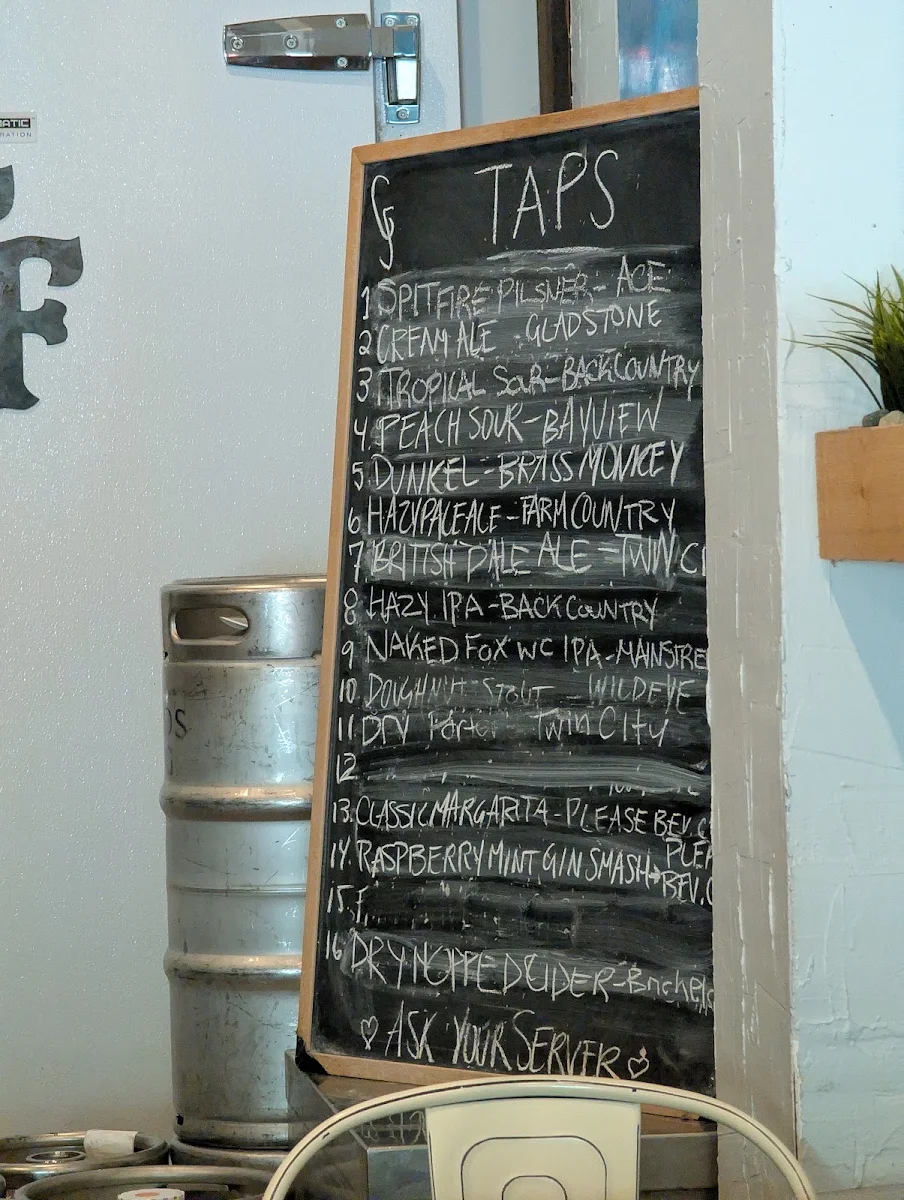 MATIC
RATION
F
TAPS
1 SPITFIRE PILSNER - ACE
2 CREAM ALE GLADSTONE
3 TROPICAL SOUR - BACKCOUNTRY
4. PEACH SOUR - BAYVIEW
5. DUNKEL - BRASS MONKEY
6 HAZY PALE ALE - FARM COUNTRY
7 BRITISH PALE ALE - TWIN CI
8 HAZY IPA - BACKCOUNTRY
9 NAKED FOX WC IPA - MAINSTREE
10. DOUGHNUT STOUT - WILDEYE
11 DRY Porter Twin City
12
13. CLASSIC MARGARITA - PLEASE BEV. C
14. RASPBERRY MINT GIN SMASH → PLEA
BEV. C
15.
16 DRY HOPPED CIDER - Brichela
♡ ASK YOUR SERVER ♡
OS